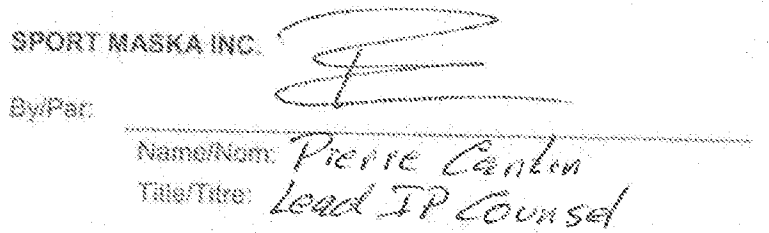 SPORT MASKA INC.
By/Par:
Name/Nom: Pierre Cantin
Title/Titre: Lead IP Counsel